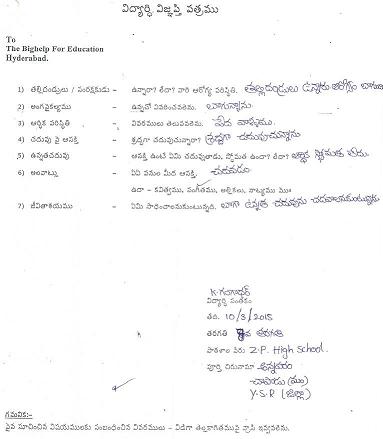 విద్యార్ధి విజ్ఞప్తి పత్రము
To
The Bighelp For Education
Hyderabad.
1) తల్లిదండ్రులు / సంరక్షకుడు - ఉన్నారా? లేదా? వారి ఆరోగ్య పరిస్థితి. తల్లిదండ్రులు ఉన్నారు ఆరోగ్యం
2) అంగవైకల్యము - ఉన్నచో వివరించవలెను. బాగున్నాను
3) ఆర్ధిక పరిస్థితి - వివరములు తెలుపవలెను. పేద
4) చదువు పై ఆసక్తి - శ్రద్ధగా చదువుచున్నారా? శ్రద్ధగా చదువుచున్నాను
5) ఉన్నతచదువు - ఆసక్తి ఉంటే ఏమి చదువుతాడు, స్తోమత ఉందా? లేదా? ఆర్థిక స్తోమత లేదు.
6) అలవాట్లు - ఏఏ పనుల మీద ఆసక్తి. చదవడం
ఉదా - కవిత్వము, సంగీతము, అల్లికలు, నాట్యము మొ॥
7) జీవితాశయము - ఏమి సాధించాలనుకుంటున్నది. బాగా ఉన్నత చదువును చదవాలనుకుంటున్నాను
విద్యార్ధి సంతకం
తేది. 10/3/2015
తరగతి 7వ తరగతి
పాఠశాల పేరు Z.P. High School.
పూర్తి చిరునామా అన్నవరం
చాపాడు (మం)
Y.S.R (జిల్లా)
గమనిక:-
పైన సూచించిన విషయములకు సంబంధించిన వివరములు - విడిగా తెల్లకాగితముపై వ్రాసి ఇవ్వవలెను.